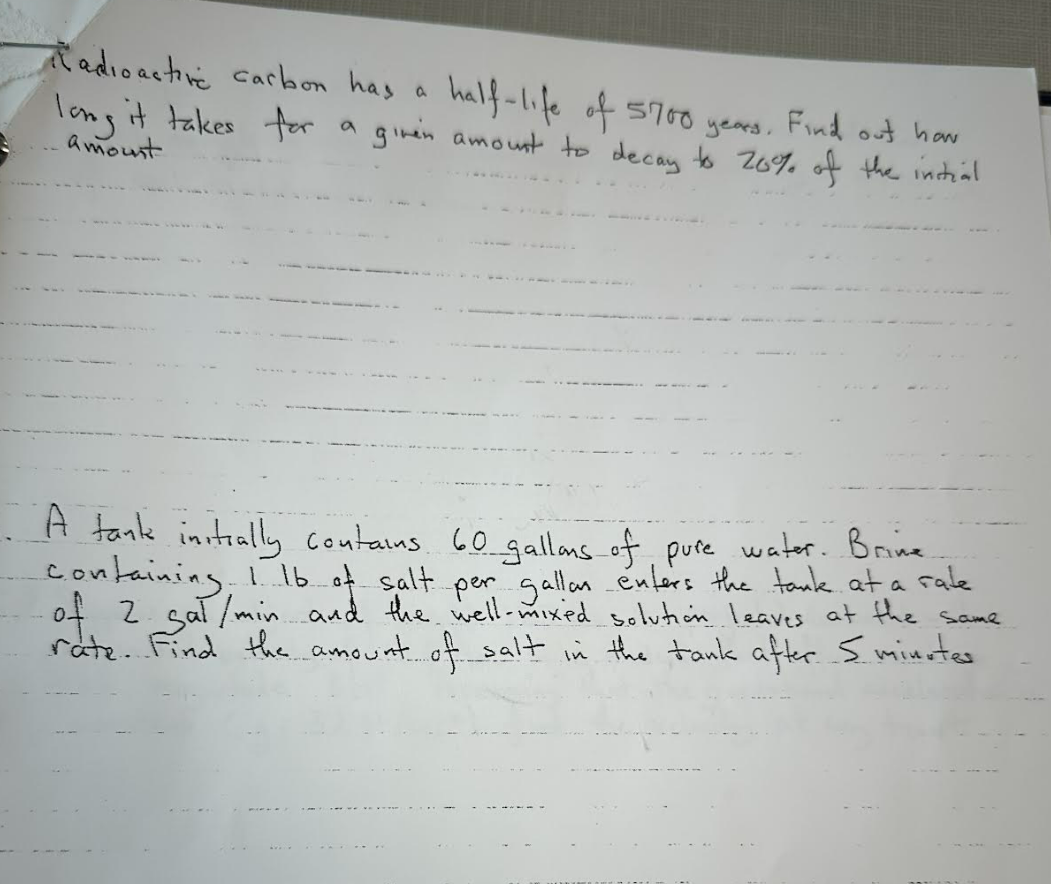 Radioactive carbon has a half-life of 5700 years. Find out how
long it takes for a given amount to decay to 20% of the initial
amount
A tank initially contains 60 gallons of pure water. Brine
containing 1 lb of salt per gallon enters the tank at a rate
of 2 gal/min and the well-mixed solution leaves at the same
rate. Find the amount of salt in the tank after 5 minutes